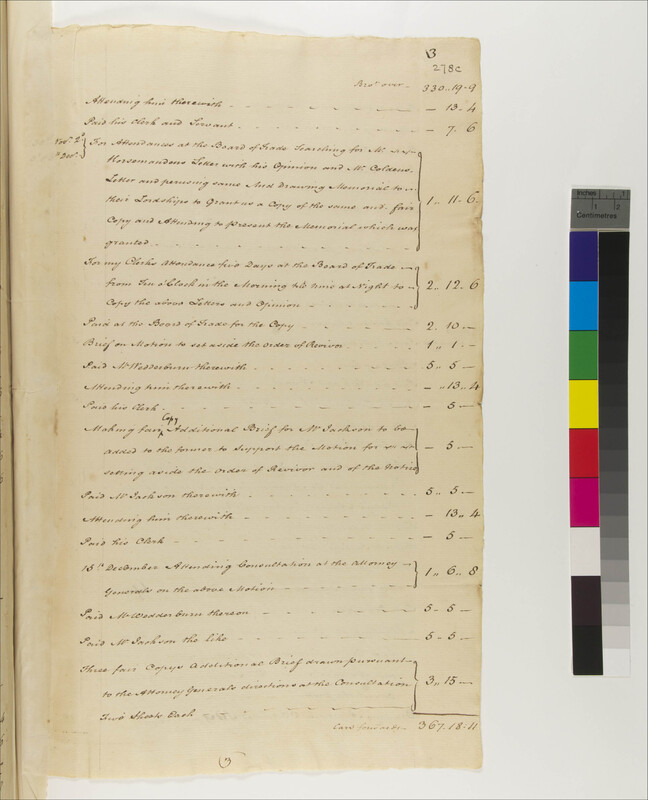 3
278c
Bro.t over - 330,, 19 - 9
Attending him therewith - 13 - 4
Paid his Clerk and Servant - 7 .. 6
For Attendances at the Board of Trade Searching for Mr.
Horsemandens Letter with his Opinion and Mr. Coldens
Letter and perusing same And drawing Memorial to
their Lordships to Grant us a Copy of the same and fair
Copy and Attending to Present the Memorial which was
granted - 1,, 11 - 6
For my Clerks Attendance five Days at the Board of Trade
from Ten o'Clock in the Morning till nine at Night to
Copy the above Letters and Opinion - 2,, 12.. 6
Paid at the Board of Trade for the Copy 2.. 10 —
Brief on Motion to set aside the Order of Revivor 1,, 1 —
Paid Mr. Wedderburn therewith 5,, 5 —
Attending him therewith — ,, 13,, 4
Paid his Clerk — 5 —
Making fair Copy Additional Brief for Mr. Jackson to be
added to the former to Support the Motion for
setting aside the Order of Revivor and of the Notice — 5 —
Paid Mr. Jackson therewith 5,, 5 —
Attending him therewith — 13,, 4
Paid his Clerk — 5 —
December Attending Consultation at the Attorney
Generals on the above Motion 1,, 6,, 8
Paid Mr. Wedderburn thereon 5 - 5 —
Paid Mr. Jackson the like 5 - 5 —
Three fair Copys Additional Brief drawn pursuant
to the Attorney Generals directions at the Consultation 3,, 15 —
Two Sheets Each
Carr.d forwards - 367 - 18 - 11
3
Inches
1
2
Centimetres